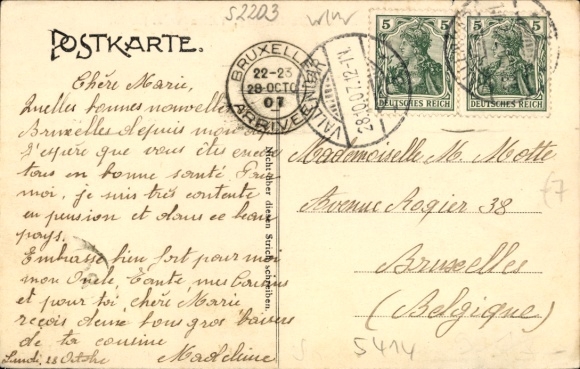 S2203
POSTKARTE.
BRUXELLES
22-23
28 OCTO
07
ARRIVEE
VALLENDAR
28.10.07.12-1N.
5 5
5 5
DEUTSCHES REICH
DEUTSCHES REICH
Chère Marie,
Quelles bonnes nouvelles
Bruxelles depuis mon
J'espère que vous êtes encore
tous en bonne santé. Pour
moi, je suis très contente
en pension et dans ce beau
pays.
Embrasse bien fort pour moi
mon Oncle, Tante, mes Cousins
et pour toi, chère Marie
reçois deux bons gros baisers
de ta cousine
Madeleine
Lundi, 28 Octobre
Nicht über diesen Strich schreiben.
Mademoiselle M. Motte
Avenue Rogier 38
Bruxelles
(Belgique)
5414